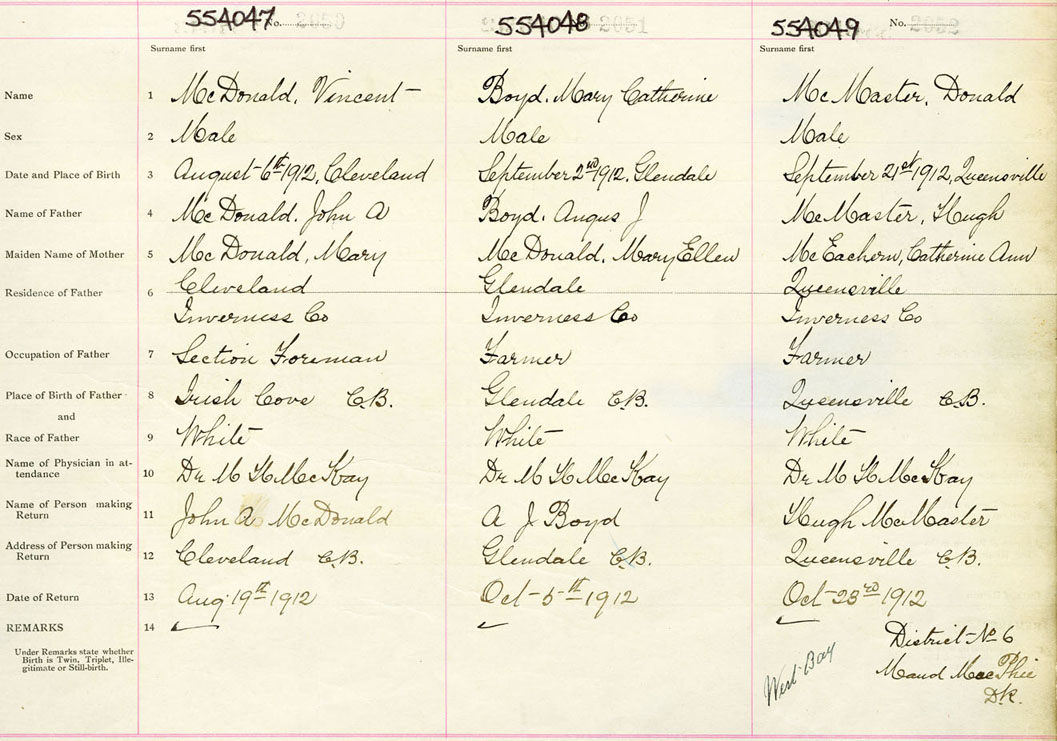 554047 No. 2050 554048 2051 554049 No. 2052
Surname first Surname first Surname first
Name 1 McDonald, Vincent Boyd. Mary Catherine McMaster, Donald
Sex 2 Male Male Male
Date and Place of Birth 3 August 6th 1912, Cleveland September 2nd 1912. Glendale September 21st 1912, Queensville
Name of Father 4 McDonald. John A Boyd. Angus J McMaster, Hugh
Maiden Name of Mother 5 McDonald, Mary McDonald. Mary Ellen McEachern, Catherine Ann
Residence of Father 6 Cleveland Glendale Queensville
Inverness Co Inverness Co Inverness Co
Occupation of Father 7 Section Foreman Farmer Farmer
Place of Birth of Father 8 Irish Cove C.B. Glendale C.B. Queensville C.B.
and
Race of Father 9 White White White
Name of Physician in at-
tendance 10 Dr M H McKay Dr M H McKay Dr M H McKay
Name of Person making
Return 11 John A McDonald A J Boyd Hugh McMaster
Address of Person making
Return 12 Cleveland C.B. Glendale C.B. Queensville C.B.
Date of Return 13 Aug 19th 1912 Oct 5th 1912 Oct 23rd 1912
REMARKS 14 District No 6
Under Remarks state whether
Birth is Twin, Triplet, Ille-
gitimate or Still-birth.
West Bay
Maud MacPhie
D.R.